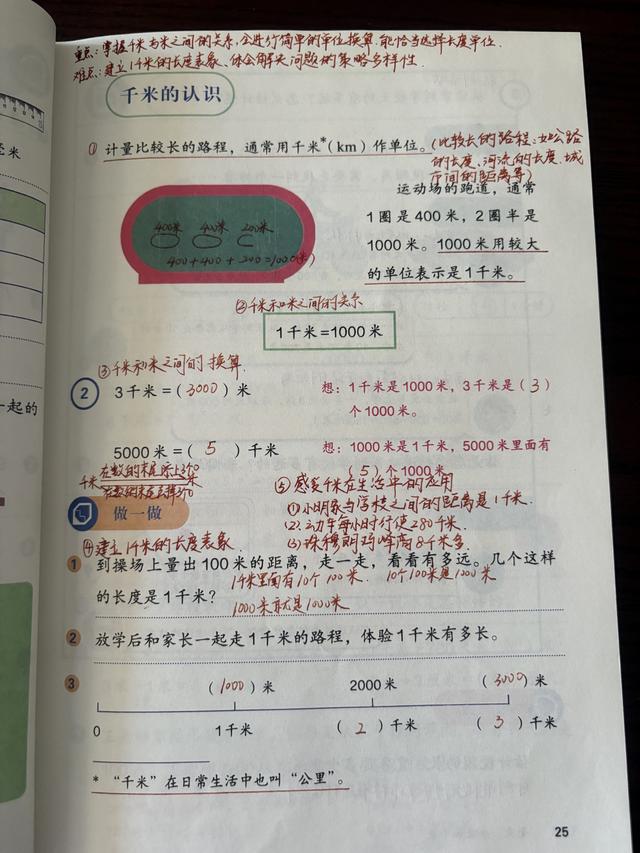 重点：掌握千米与米之间的关系，会进行简单的单位换算，能恰当选择长度单位.
难点：建立1千米的长度表象、体会解决问题的策略多样性.
千米的认识
①计量比较长的路程，通常用千米*（km）作单位。(比较长的路程：如公路
的长度、河流的长度、城
市间的距离等)
运动场的跑道，通常
400米 400米 200米
1圈是400米，2圈半是
400+400+200=1000(米)
1000米。1000米用较大
的单位表示是1千米。
②千米和米之间的关系
1千米=1000米
③千米和米之间的换算.
2 3千米=（3000）米 想：1千米是1000米，3千米是（3）
个1000米。
5000米=（5）千米 想：1000米是1千米，5000米里面有
（5）个1000米。
千米 在数的末尾添上3个0 米
在数的末尾去掉3个0
⑤感受千米在生活中的应用
做一做
①小明家与学校之间的距离是1千米.
②动车每小时行使280千米.
④建立1千米的长度表象.
③珠穆朗玛峰高8千米多
1 到操场上量出100米的距离，走一走，看看有多远。几个这样
1千米里面有10个100米. 10个100米是1000米
的长度是1千米？
1000米就是1000米
2 放学后和家长一起走1千米的路程，体验1千米有多长。
3 （1000）米 2000米 （3000）米
0 1千米 （2）千米 （3）千米
* “千米”在日常生活中也叫“公里”。
25